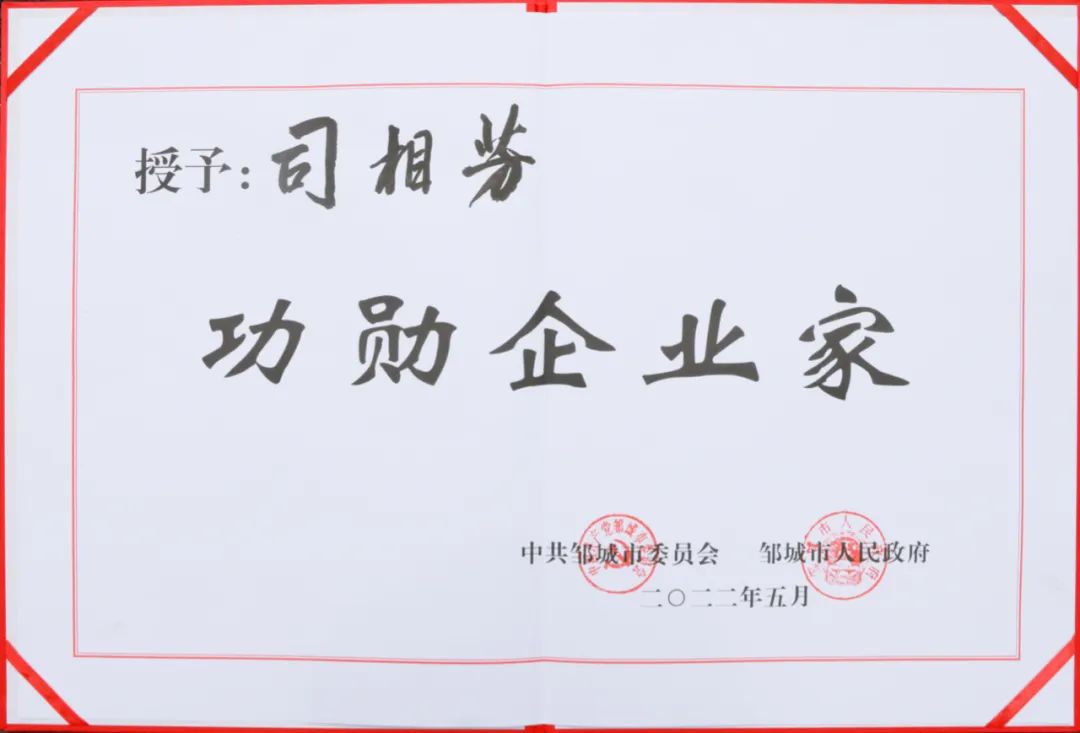 授予：司相芳
功勋企业家
中共邹城市委员会 邹城市人民政府
二〇二二年五月